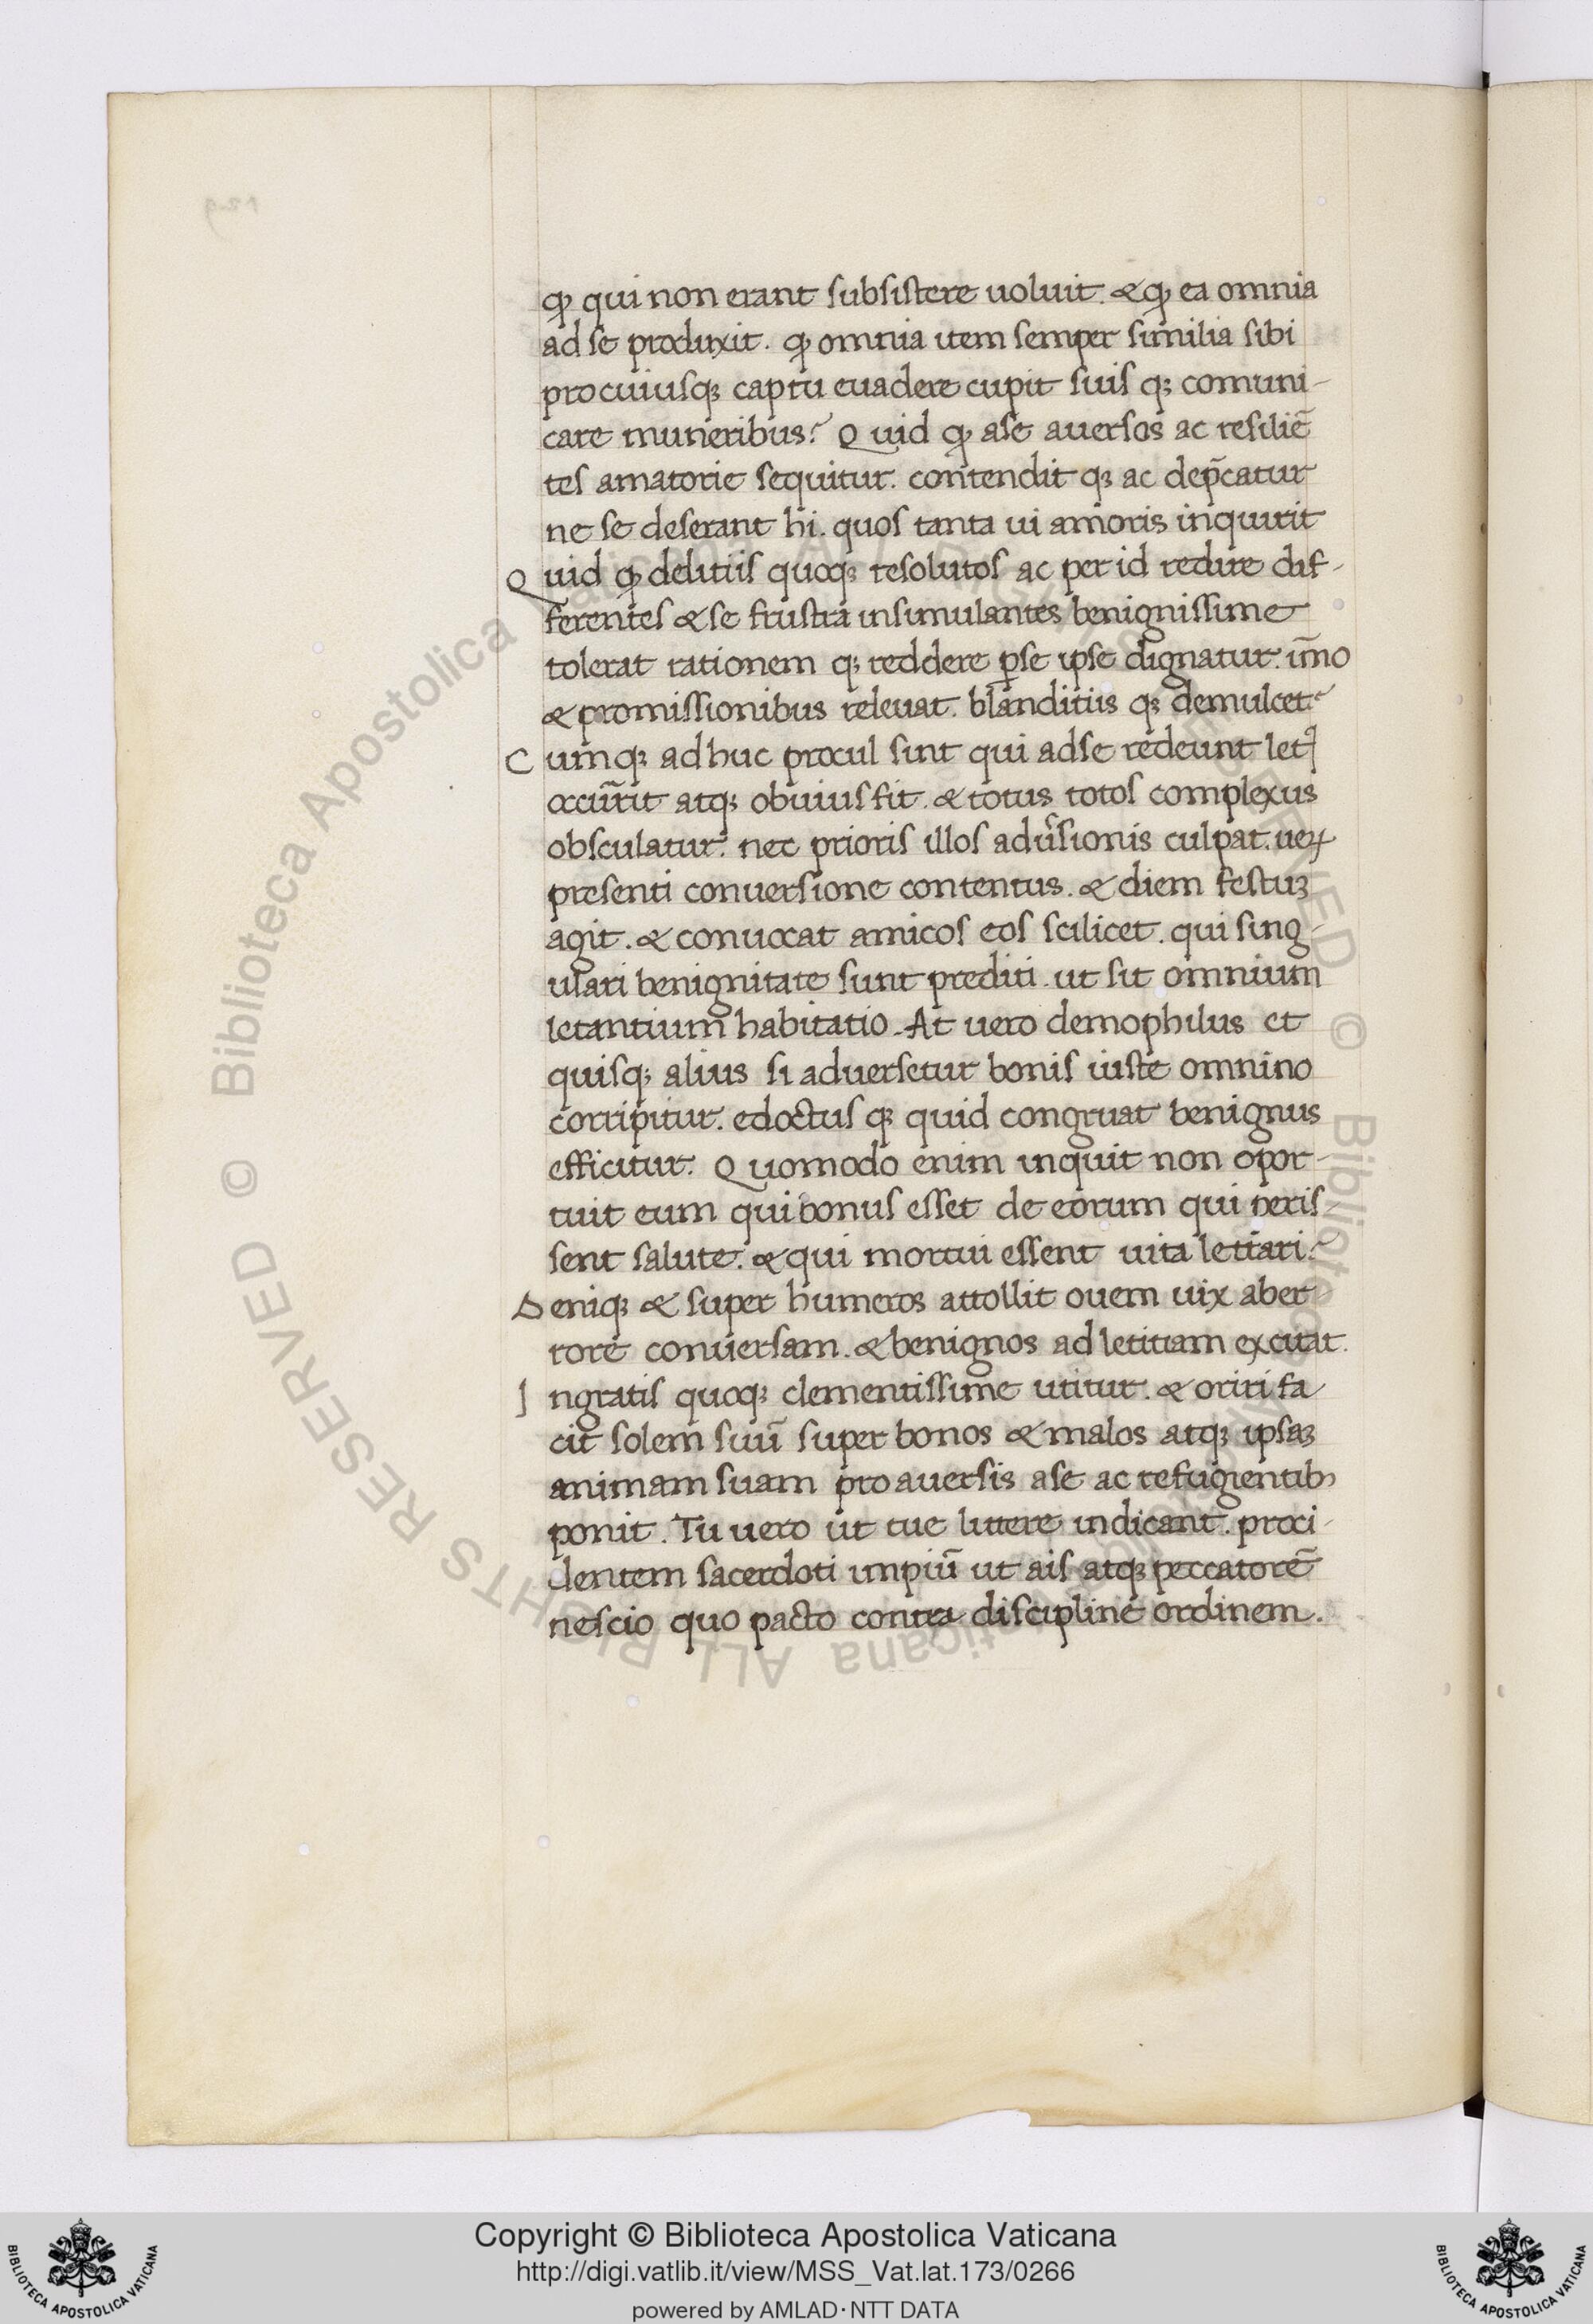 ꝙ qui non erant subsistere uoluit. & ꝙ ea omnia
ad se produxit. ꝙ omnia item semper similia sibi
pro cuiusq; captu euadere cupit suis q; comuni-
care muneribus? Quid ꝙ a se auersos ac resiliē
tes amatorie sequitur. contendit q; ac dep̄catur
ne se deserant hi. quos tanta ui amoris inquirit
Quid ꝙ delitiis quoq; resolutos ac per id redire dif-
ferentes & se frustra insimulantes benignissime
tolerat rationem q; reddere ꝑ se ipse dignatur. im̄o
& promissionibus releuat. blanditiis q; demulcet?
Cumq; ad huc procul sint qui ad se redeunt letꝰ
occur̄it atq; obuius fit. & totus totos complexus
obsculatur. nec prioris illos adu̓sionis culpat. ueꝝ
presenti conuersione contentus. & diem festuꝫ
agit. & conuocat amicos eos scilicet. qui sing-
ulari benignitate sunt prediti. ut sit omnium
letantium habitatio. At uero demophilus et
quisq; alius si aduersetur bonis iuste omnino
corripitur. edoctus q; quid congruat benignus
efficitur. Quomodo enim inquit non opor-
tuit eum qui bonus esset de eorum qui peris
sent salute. & qui mortui essent uita lettari?
Deniq; & super humeros attollit ouem uix aber
rore conuersam. & benignos ad letitiam excitat.
Ingratis quoq; clementissime utitur. & oriri fa
cit solem suū super bonos & malos atq; ipsaꝫ
animam suam pro auersis a se ac refugientibꝰ
ponit. Tu uero ut tue littere indicant. proci-
dentem sacerdoti impiū ut ais atq; peccatorē
nescio quo pacto contra discipline ordinem.
© Biblioteca Apostolica Vaticana ALL RIGHTS RESERVED
Copyright © Biblioteca Apostolica Vaticana
http://digi.vatlib.it/view/MSS_Vat.lat.173/0266
powered by AMLAD·NTT DATA
BIBLIOTECA APOSTOLICA VATICANA
BIBLIOTECA APOSTOLICA VATICANA